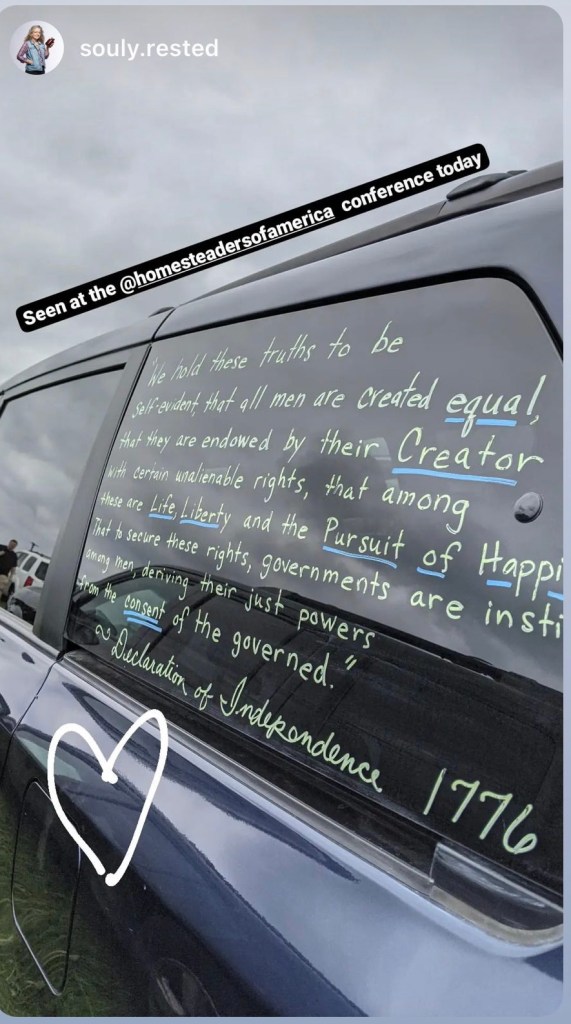 souly.rested
Seen at the @homesteadersofamerica conference today
"We hold these truths to be
self-evident, that all men are created equal,
that they are endowed by their Creator
with certain unalienable rights, that among
these are Life, Liberty and the Pursuit of Happi
That to secure these rights, governments are insti
among men, deriving their just powers
from the consent of the governed."
~ Declaration of Independence 1776